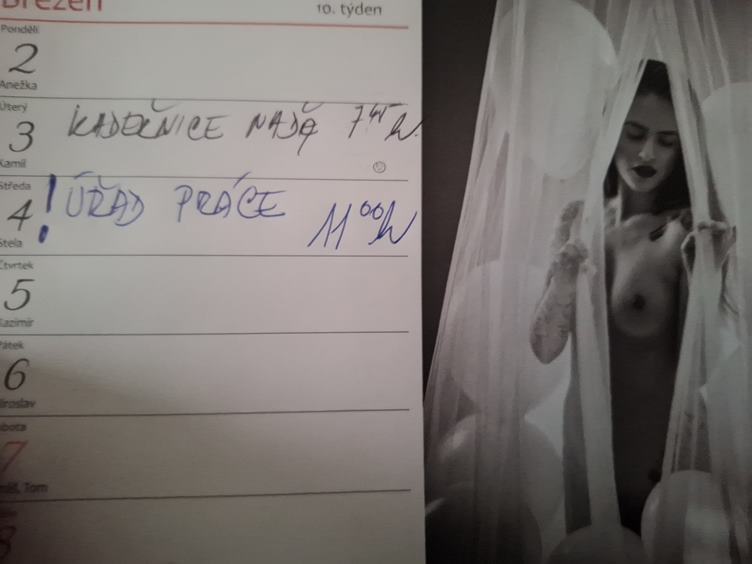 Březen
10. týden
Pondělí
2
Anežka
Úterý
3 KADEŘNICE NAĎA 7⁴⁵ h.
Kamil
Středa
4 ! ÚŘAD PRÁCE 11⁰⁰ h
Stela
Čtvrtek
5
Kazimír
Pátek
6
Miroslav
Sobota
7
Tomáš, Tom
8